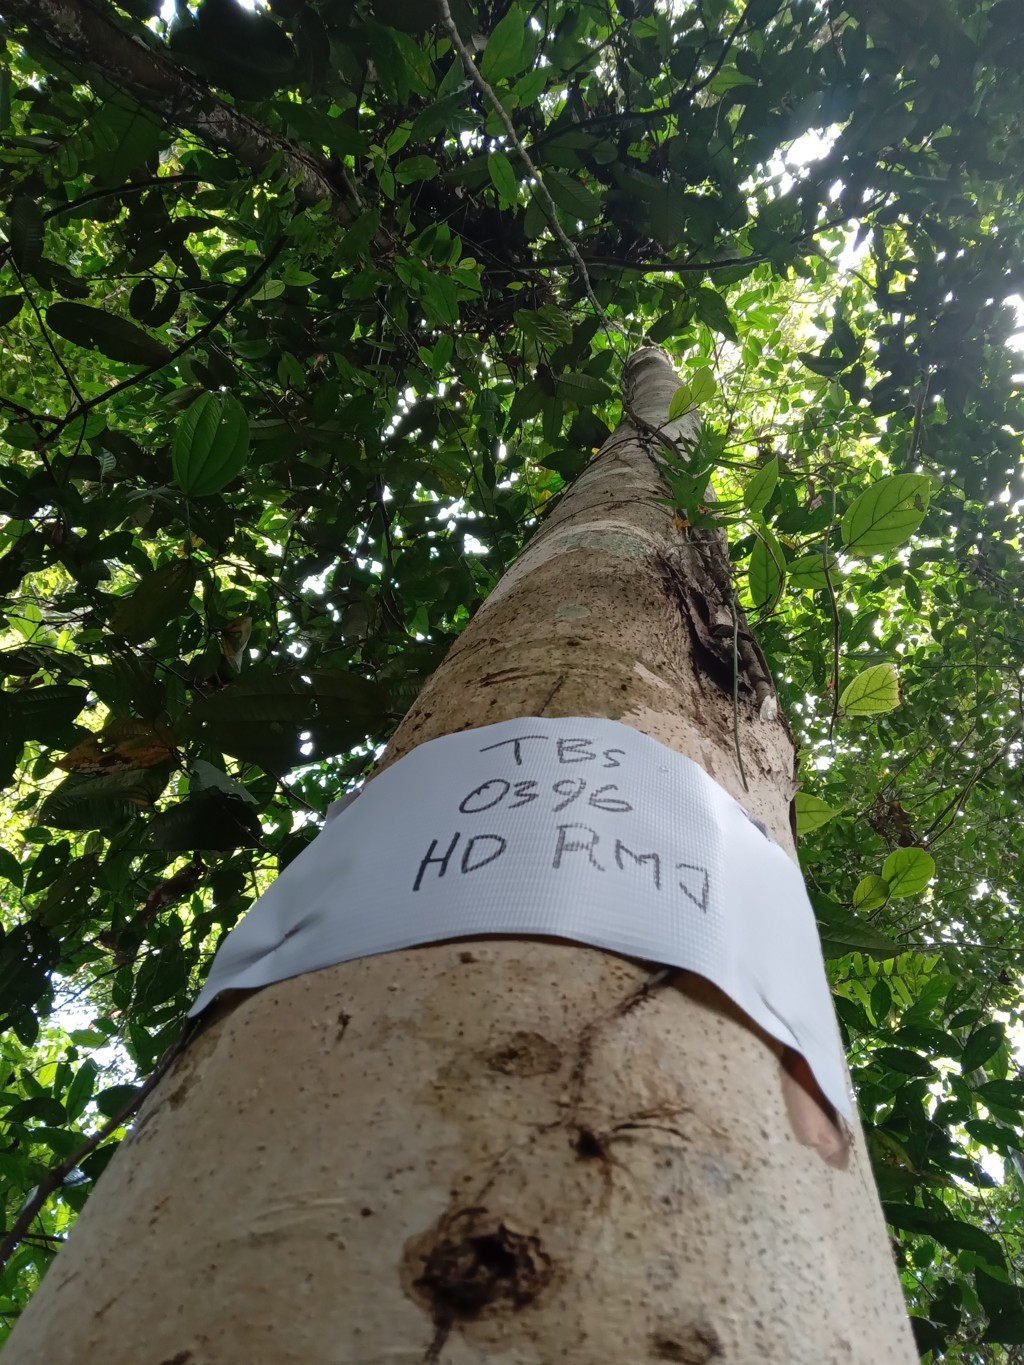 TBs
0396
HD RMJ